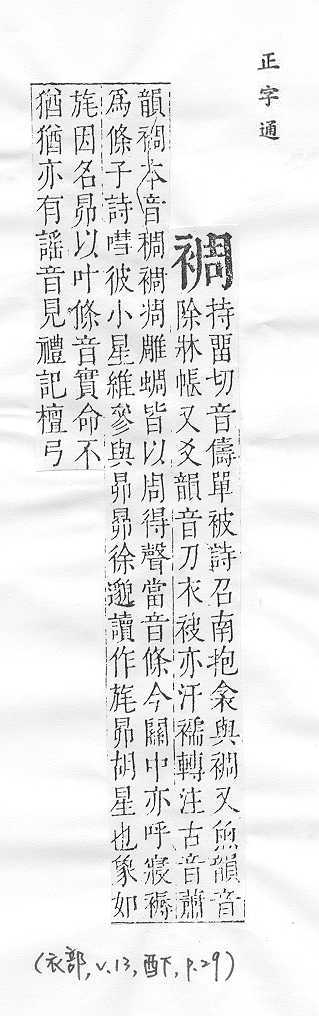 正字通
裯
持畱切音儔單被詩召南抱衾與裯又魚韻音
除牀帳又爻韻音刀衣袂亦汗襦轉注古音蕭
韻裯本音稠裯凋雕蜩皆以周得聲當音條今關中亦呼寢褥
爲條子詩嘒彼小星維參與昴昴徐邈讀作旄昴胡星也象如
旄因名昴以叶條音實命不
猶猶亦有謠音見禮記檀弓
(衣部, v.13, 酉下, p.29)